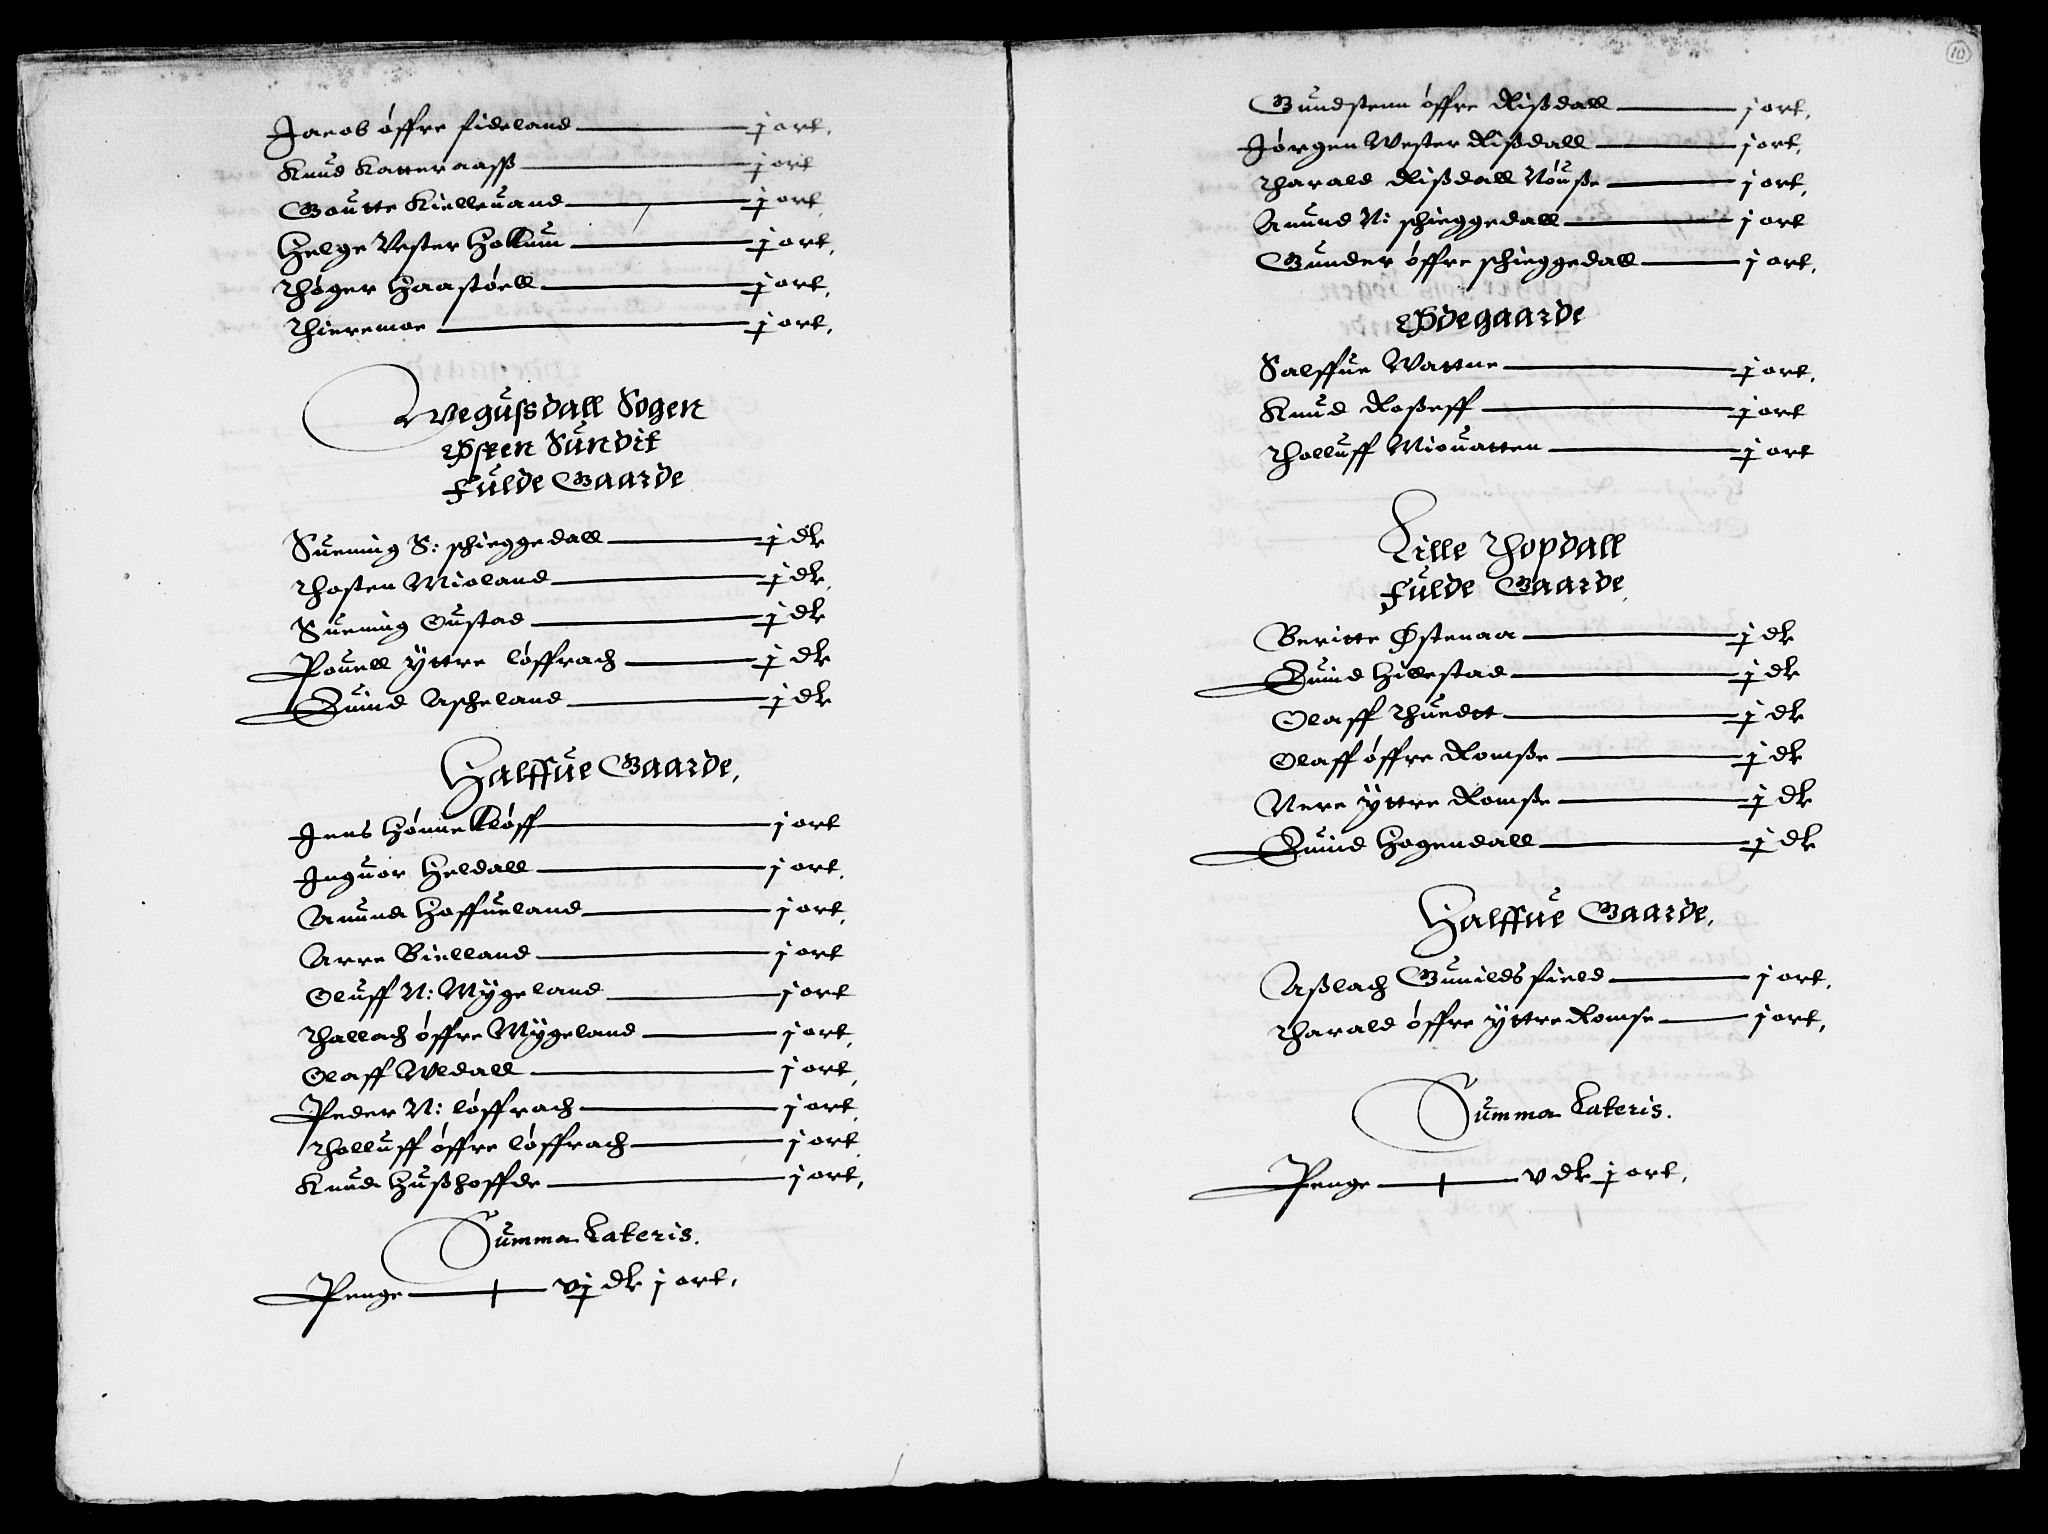 Jacob öffre fideland — j ort.
Knud Katteraasß — j ort
Goutte Kielleuand — j ort
Helge Vester Hollum — j ort.
Thøger Haastöell — j ort.
Thieremoe — j ort.
Wegussdall Sogen
Østen Sundit
Fulde Gaarde
Suening S: schieggedall — j dlr
Thosten Mioland — j dlr.
Suening Oustad — j dlr
Pouell ÿttre löffrach — j dlr
Suind Ascheland — j dlr
Halffue Gaarde.
Jens Hönneklöff — j ort
Inguor Heldall — j ort.
Anund Hoffueland — j ort.
Arre Bielland — j ort
Oluff N: Mÿgeland — j ort
Thallach öffre Mÿgeland — j ort.
Olaff Wldall — j ort.
Peder N: löffrach — j ort.
Tholluff öffre löffrach — j ort.
Knud Hußhoffde — j ort.
Summa Lateris.
Penge — vj dlr j ort.
10
Gundstenn öffre Rißdall — j ort.
Jørgen Wester Rißdall — j ort.
Tharald Rißdall Nöuße — j ort.
Anund N: schieggedall — j ort
Gunder öffre schieggedall — j ort.
Ødegaarde
Salffue Wattne — j ort.
Knud Roßeff — j ort
Tholluff Miouatten — j ort
Lille Thopdall
Fulde Gaarde.
Beritte Østenaa — j dlr
Suind Hillestad — j dlr
Olaff Thuedtt — j dlr
Olaff öffre Romße — j dlr
Nere ÿttre Romße — j dlr
Suind Hogendall — j dlr
Halffue Gaarde.
Aßlach Gunildsfield — j ort.
Tharald öffre ÿttre Romse — j ort.
Summa Lateris.
Penge — v dlr j ort.